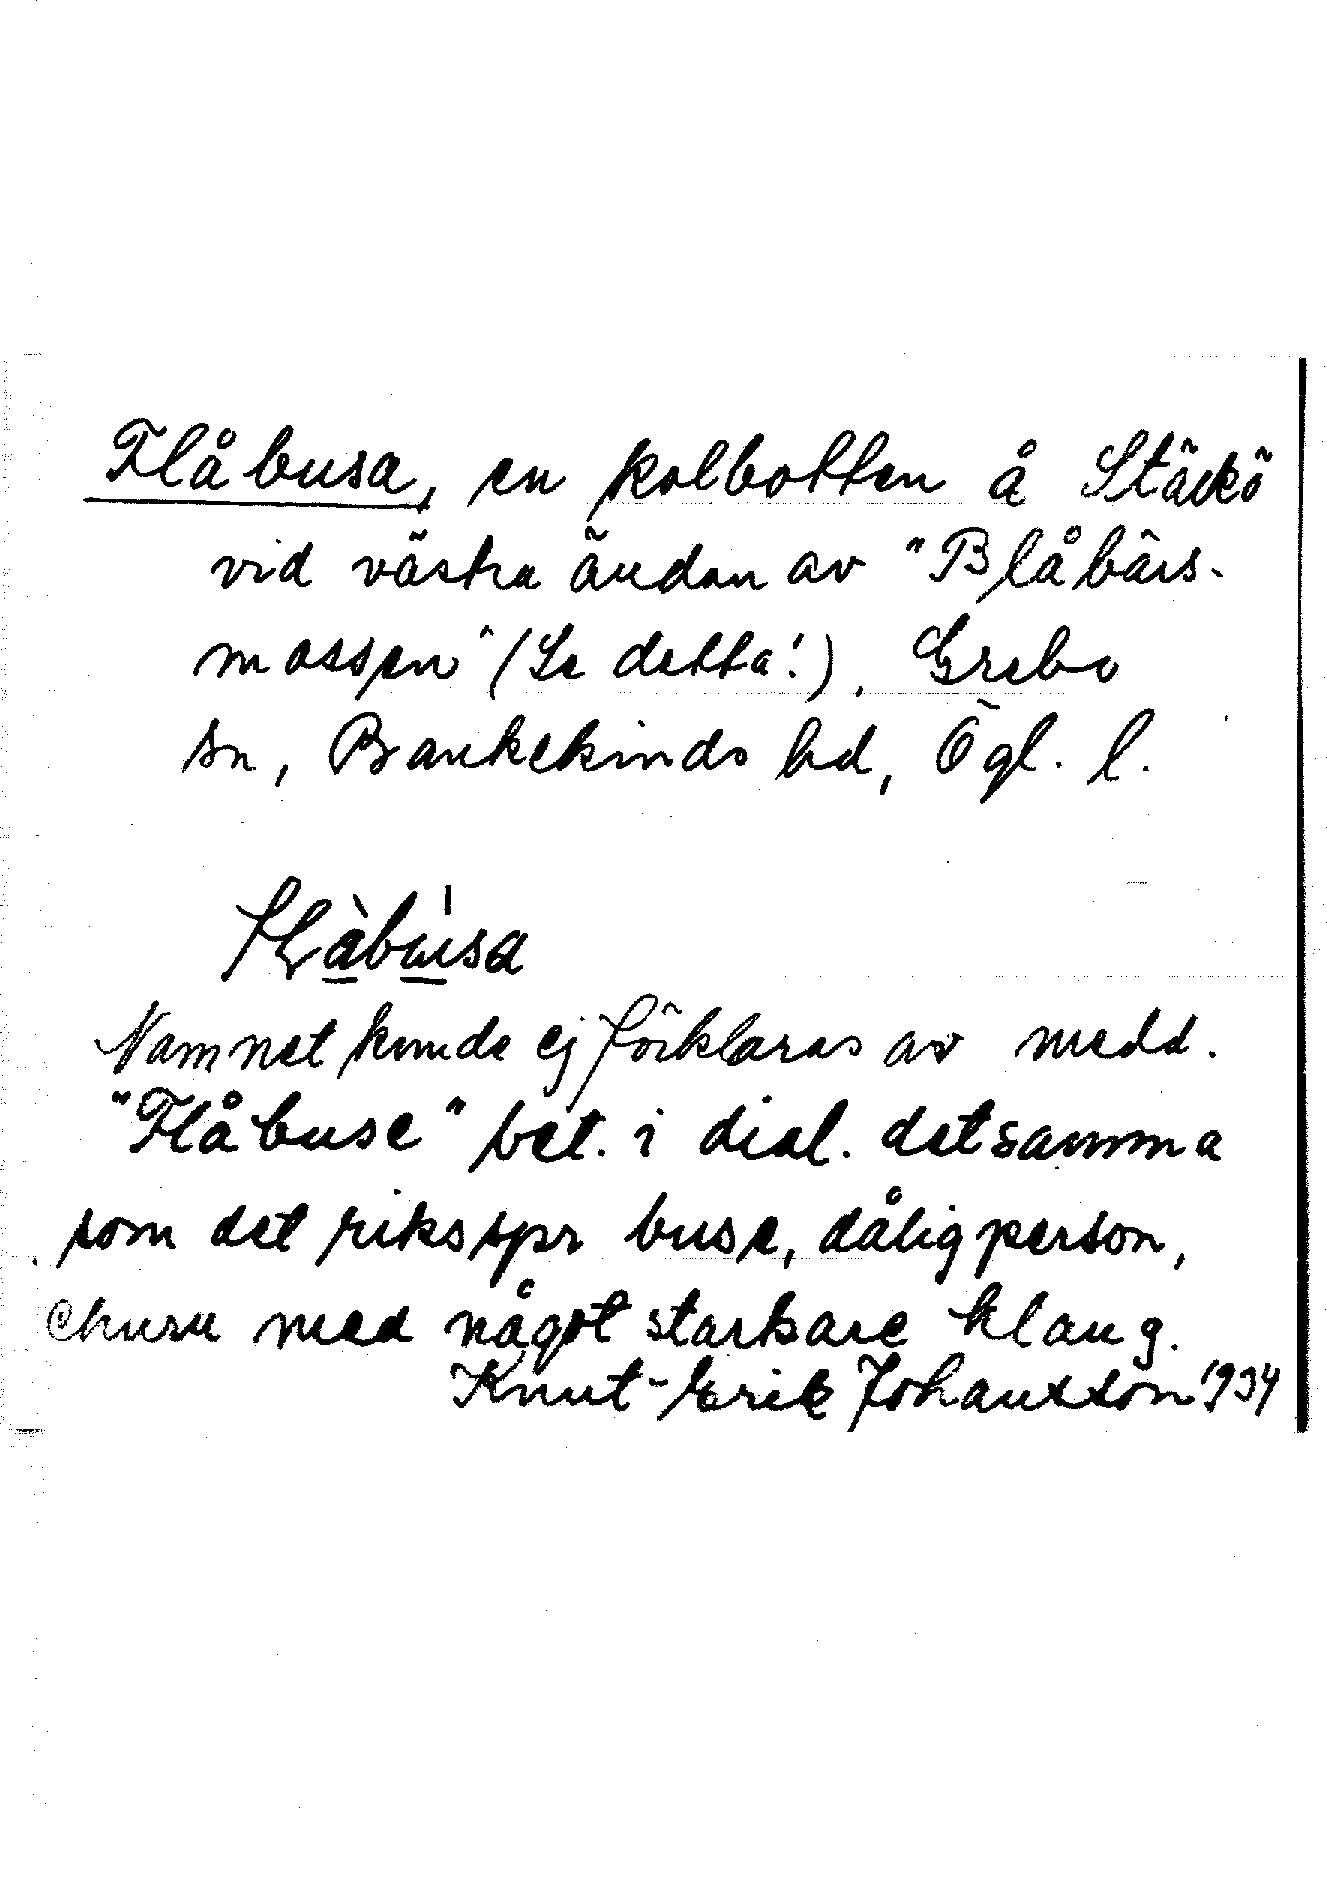 Flåbusa, en kolbotten å Stäckö
vid västra ändan av "Blåbärs-
mossen" (Se detta!), Grebo
sn, Bankekinds hd, Ögl. l.
flàbúsa
Namnet kunde ej förklaras av medd.
"Flåbuse" bet. i dial. detsamma
som det riksspr buse, dålig person,
ehuru med något starkare klang.
Knut-Erik Johansson 1934